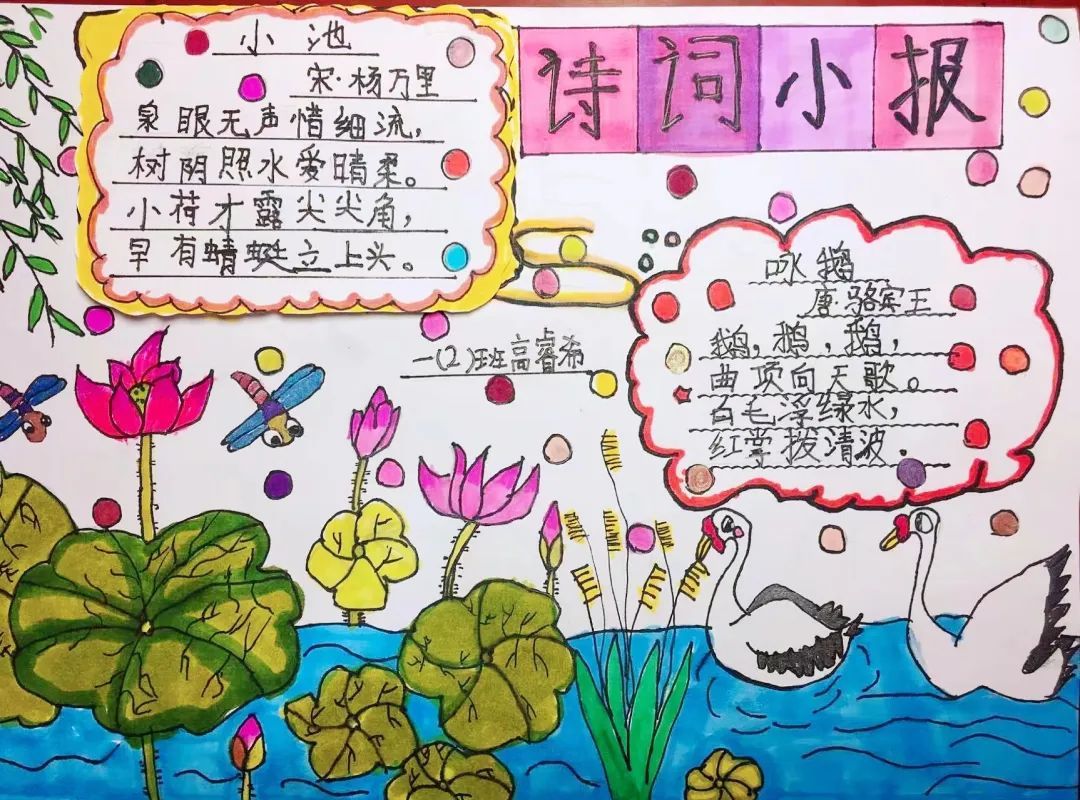 诗词小报
小池
宋·杨万里
泉眼无声惜细流，
树阴照水爱晴柔。
小荷才露尖尖角，
早有蜻蜓立上头。
一(2)班高睿希
咏鹅
唐·骆宾王
鹅，鹅，鹅，
曲项向天歌。
白毛浮绿水，
红掌拨清波.